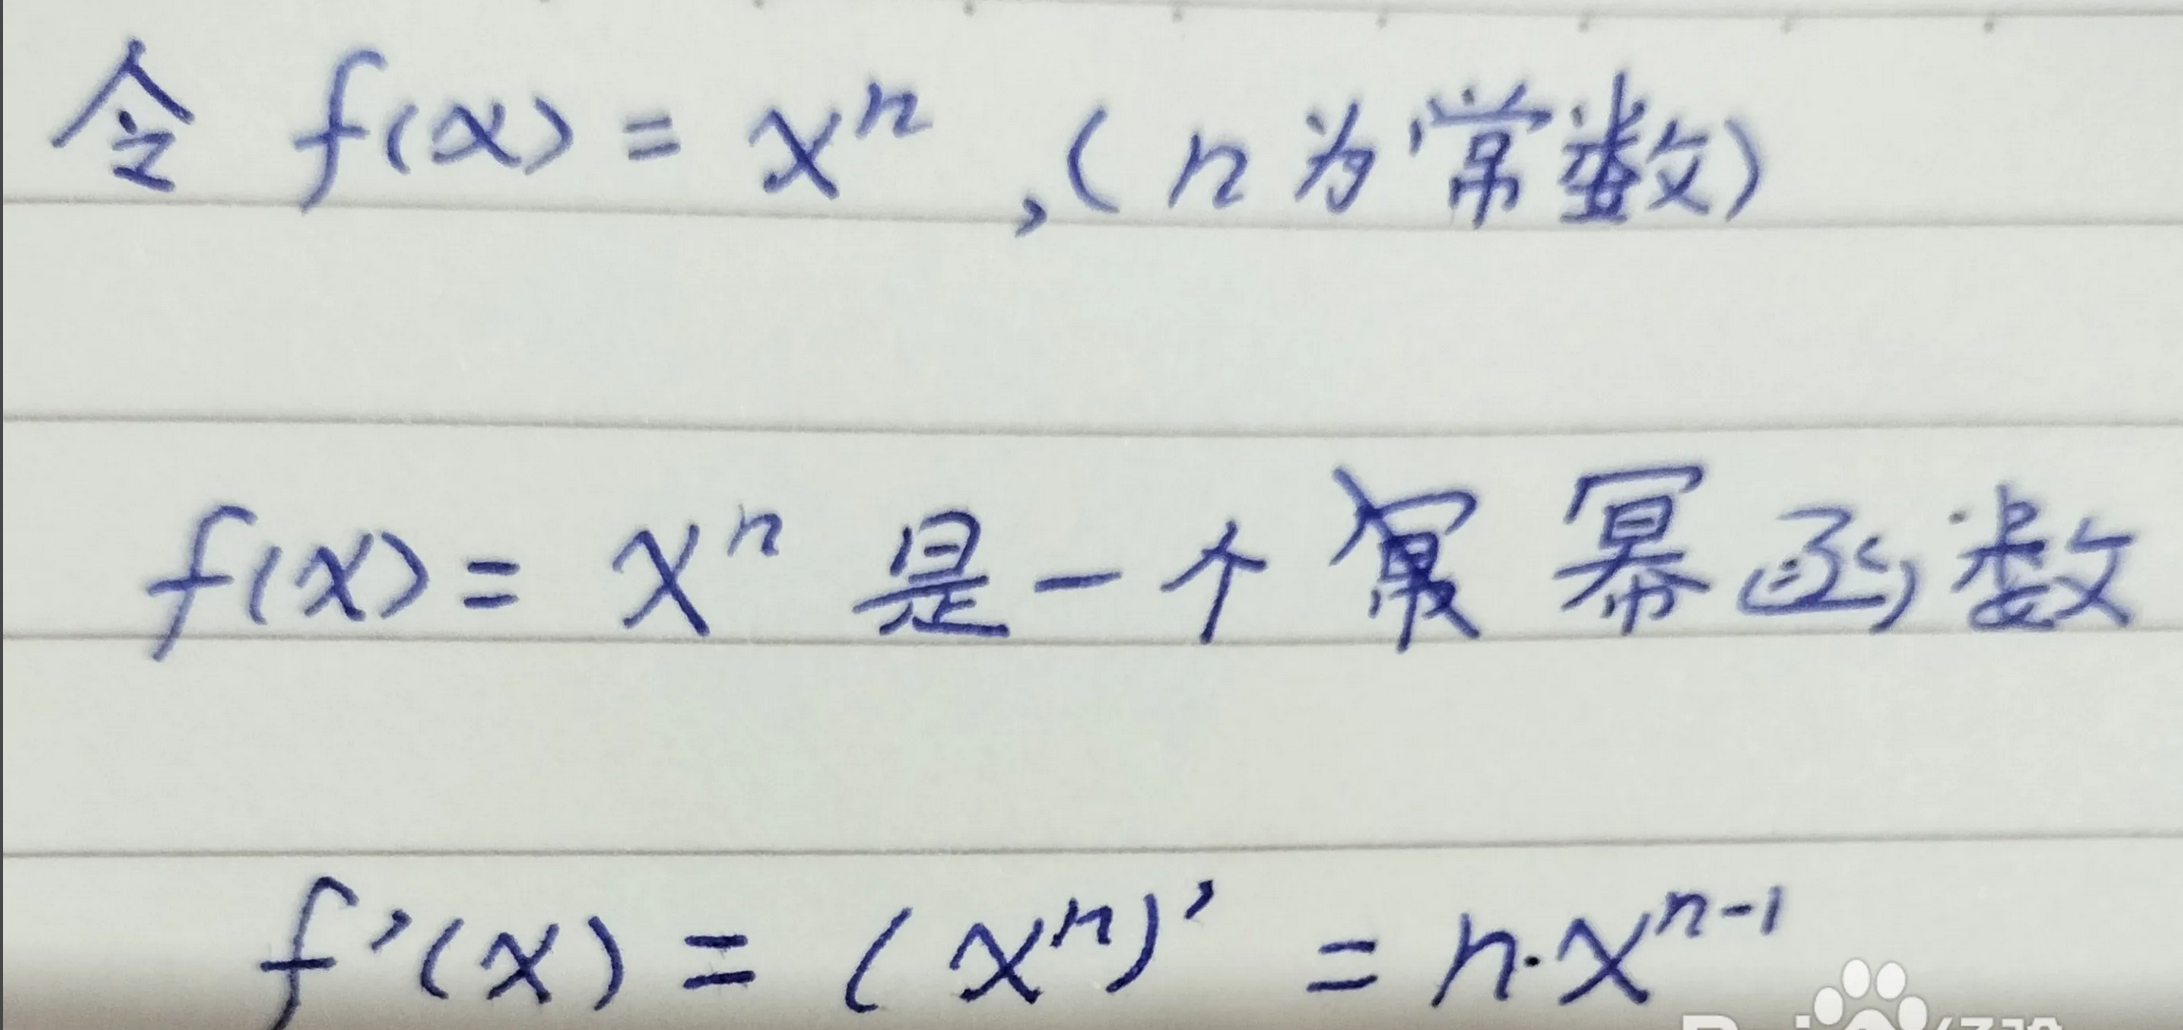 令 f(x) = xⁿ ,( n为常数)
f(x) = xⁿ 是一个 幂函数
f'(x) = (xⁿ)' = n·xⁿ⁻¹